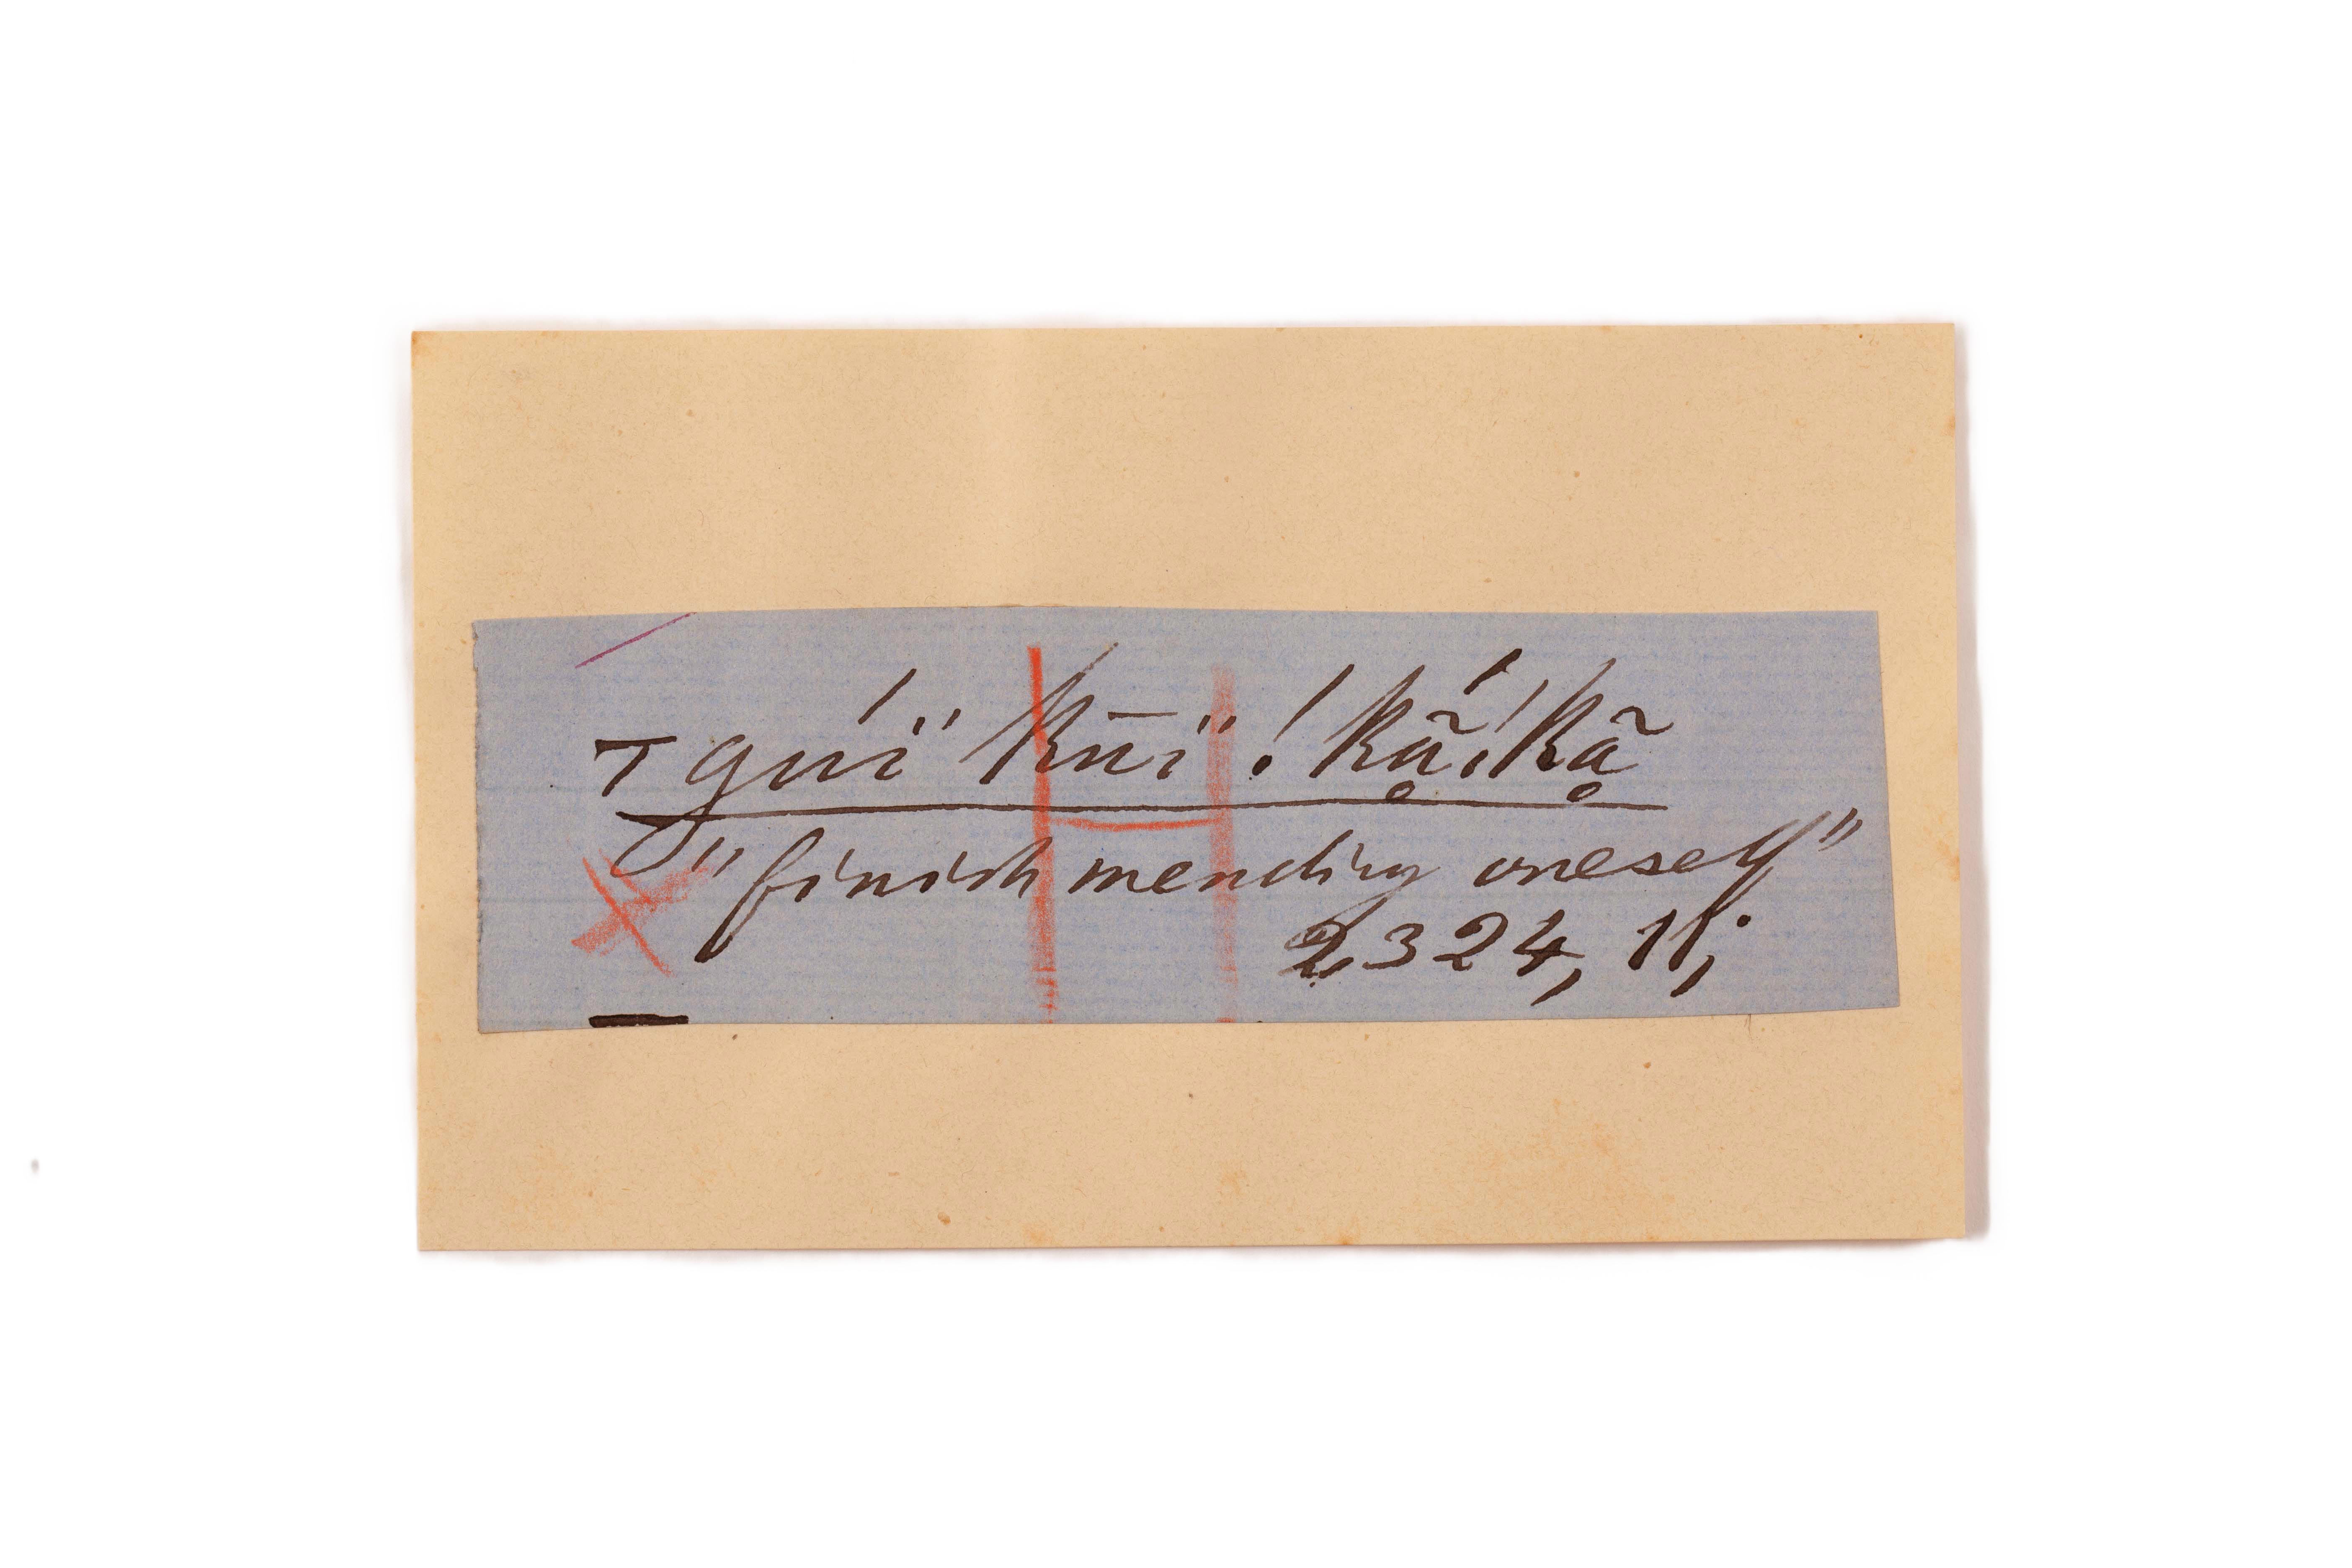 ⊤gúï k̄uï !kḁ̃́!kḁ̃
"finish mending oneself"
2324, 11;